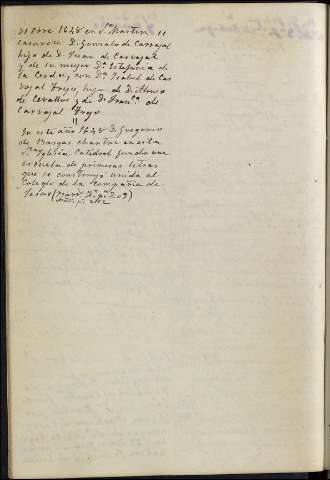 Dbre 1648 en Sn. Martin se
casaron D. Gonzalo de Carvajal
hijo de D. Juan de Carvajal
y de su mujer Da. Estefania de
la Cerda, con Da. Isabel de Car
vajal Trejo, hija de D. Alonso
de Cevallos y de Da. Franca. de
Carvajal Trejo
"
En este año 1648 D. Gregorio
de Vargas chantre en esta
Sta. Iglesia Catedral fundó una
escuela de primeras letras
que se construyó unida al
Colegio de la Compañia de
Jesus